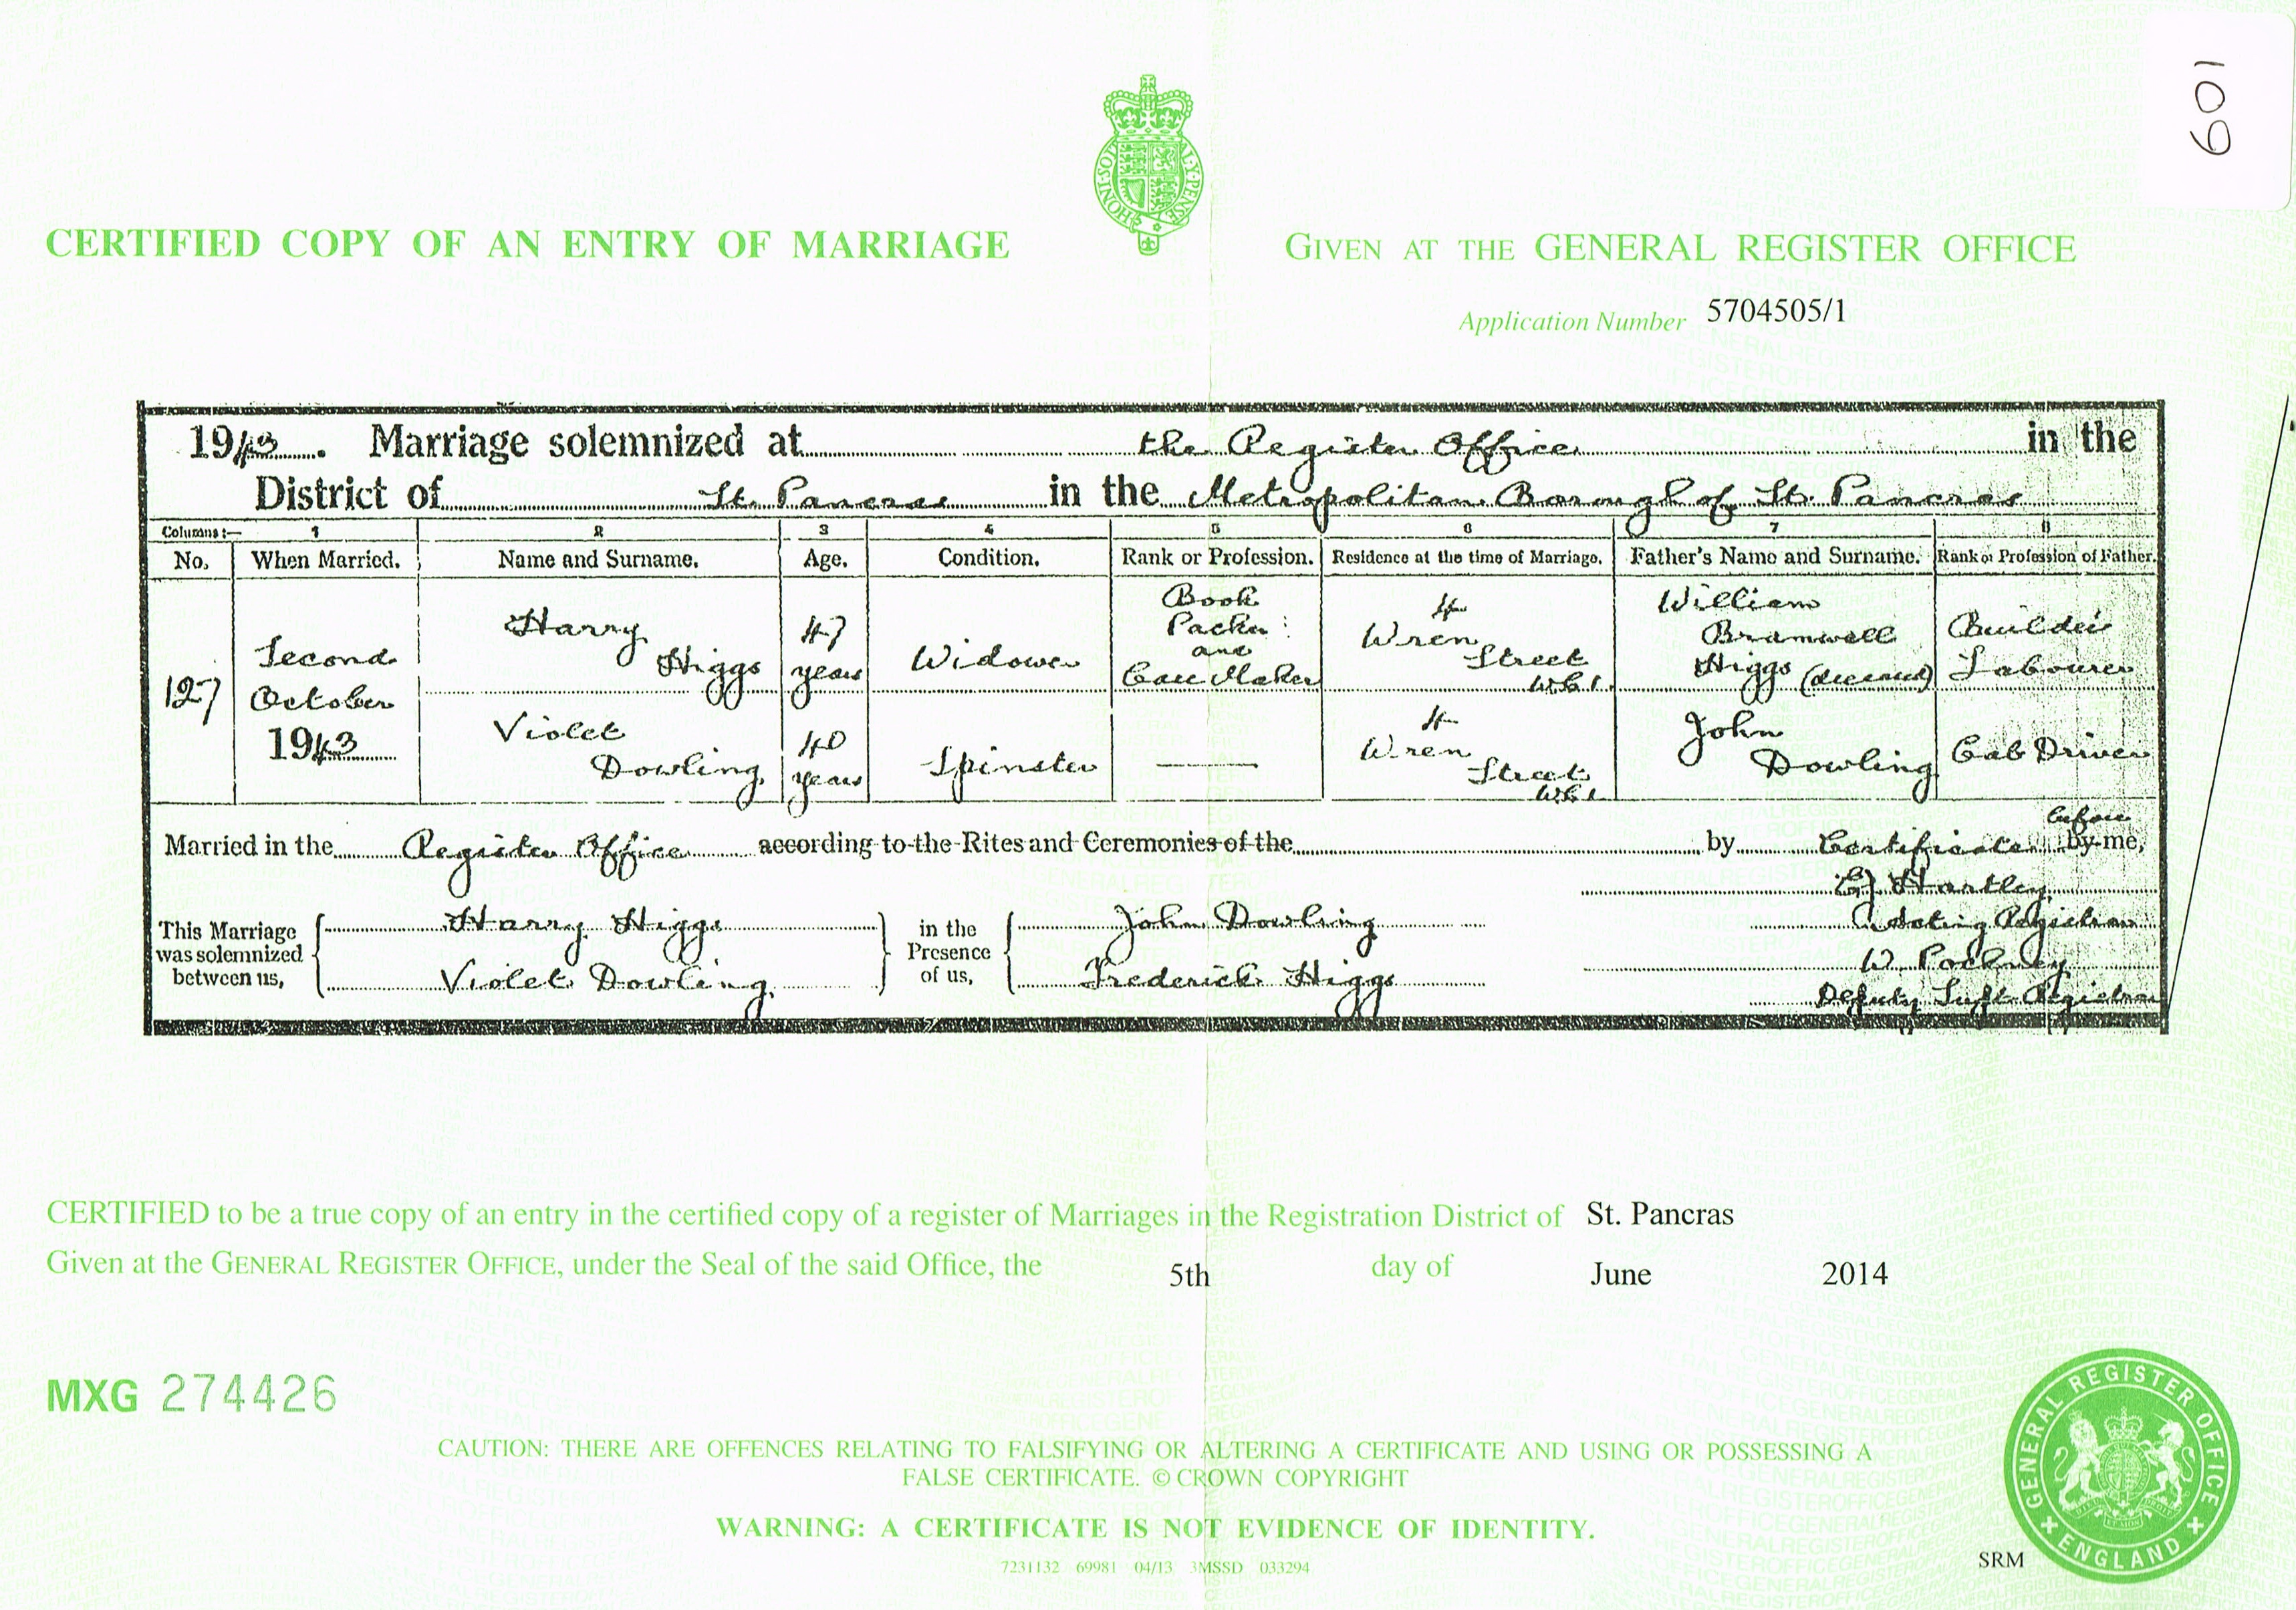 601
HONI·SOI AL·Y·PENSE
CERTIFIED COPY OF AN ENTRY OF MARRIAGE
GIVEN AT THE GENERAL REGISTER OFFICE
Application Number 5704505/1
1943. Marriage solemnized at the Register Office in the
District of St. Pancras in the Metropolitan Borough of St. Pancras
Columns:— 1 2 3 4 5 6 7 8
No. When Married. Name and Surname. Age. Condition. Rank or Profession. Residence at the time of Marriage. Father's Name and Surname. Rank or Profession of Father.
127 Second October 1943 Harry Higgs 47 years Widower Book Packer and Case Maker 4 Wren Street WC1. William Bramwell Higgs (deceased) Builder's Labourer
Violet Dowling 40 years Spinster — 4 Wren Street WC1. John Dowling Cab Driver
Married in the Register Office according to the Rites and Ceremonies of the by Certificate before by me,
This Marriage was solemnized between us, Harry Higgs Violet Dowling
in the Presence of us, John Dowling Frederick Higgs
Hartley
Acting Registrar
W. Pockney
Deputy Supt. Registrar
CERTIFIED to be a true copy of an entry in the certified copy of a register of Marriages in the Registration District of St. Pancras
Given at the GENERAL REGISTER OFFICE, under the Seal of the said Office, the 5th day of June 2014
MXG 274426
CAUTION: THERE ARE OFFENCES RELATING TO FALSIFYING OR ALTERING A CERTIFICATE AND USING OR POSSESSING A
FALSE CERTIFICATE. © CROWN COPYRIGHT
WARNING: A CERTIFICATE IS NOT EVIDENCE OF IDENTITY.
7231132 69981 04/13 3MSSD 033294
SRM
GENERAL REGISTER OFFICE
ENGLAND